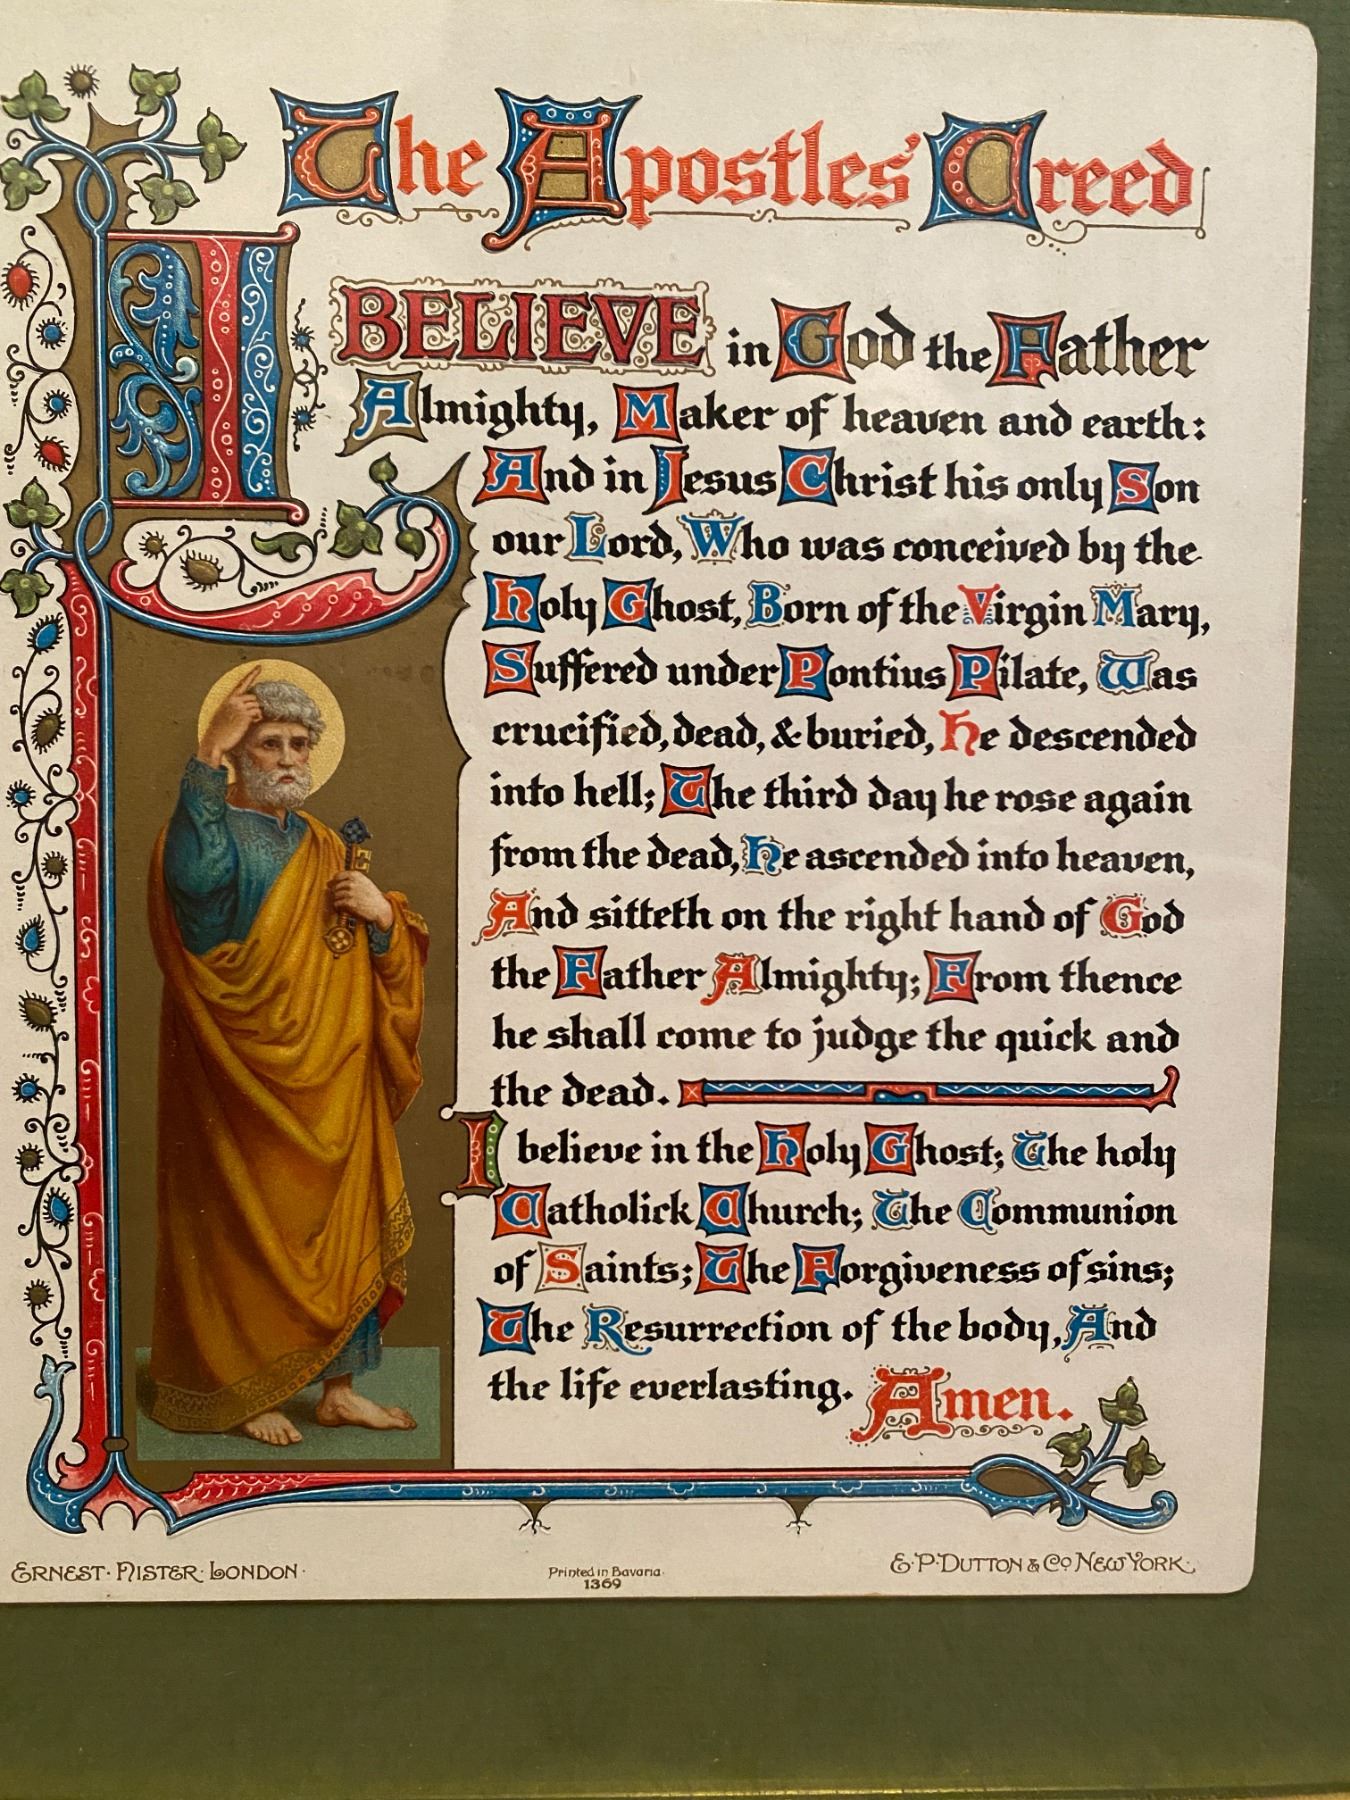 The Apostles' Creed
I BELIEVE in God the Father
Almighty, Maker of heaven and earth:
And in Jesus Christ his only Son
our Lord, Who was conceived by the
Holy Ghost, Born of the Virgin Mary,
Suffered under Pontius Pilate, Was
crucified, dead, & buried, He descended
into hell; The third day he rose again
from the dead, He ascended into heaven,
And sitteth on the right hand of God
the Father Almighty; From thence
he shall come to judge the quick and
the dead.
I believe in the Holy Ghost; The holy
Catholick Church; The Communion
of Saints; The Forgiveness of sins;
The Resurrection of the body, And
the life everlasting. Amen.
ERNEST · NISTER · LONDON ·
Printed in Bavaria.
1369
E · P · DUTTON & Co NEW YORK ·